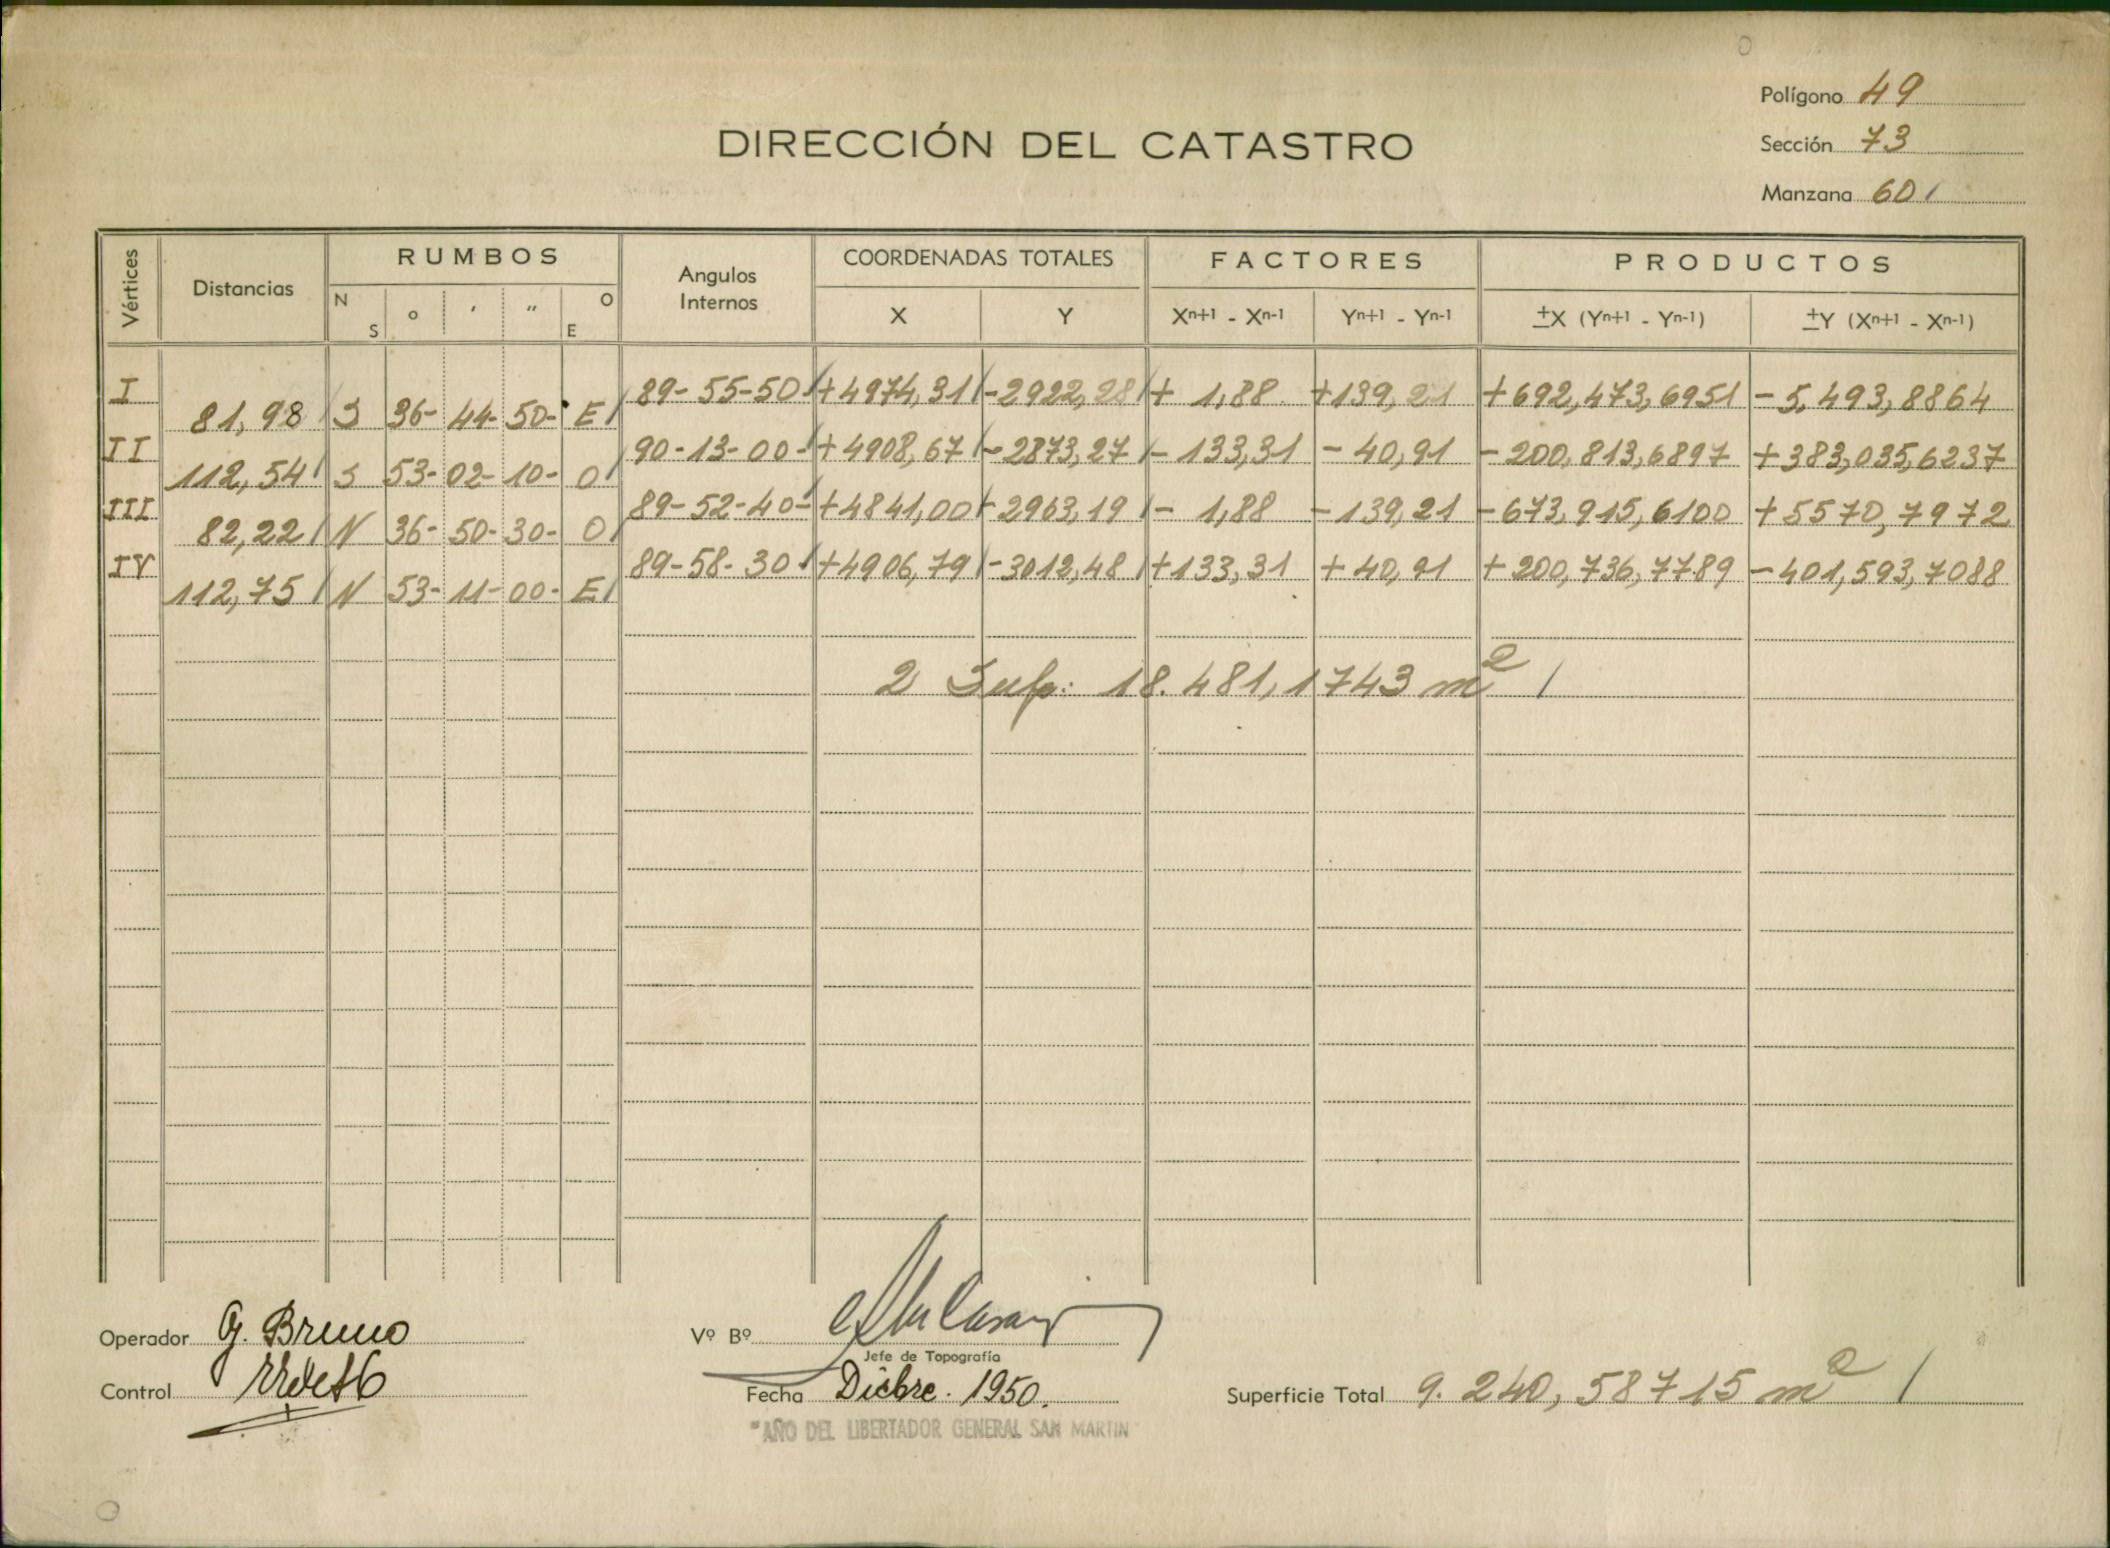 Polígono 49
DIRECCIÓN DEL CATASTRO
Sección 73
Manzana 60
Vértices Distancias RUMBOS Angulos Internos COORDENADAS TOTALES FACTORES PRODUCTOS
N S ° ′ ″ O E X Y Xn+1 - Xn-1 Yn+1 - Yn-1 ±X (Yn+1 - Yn-1) ±Y (Xn+1 - Xn-1)
I 89-55-50 +4974,31 -2922,28 + 1,88 +139,21 +692,473,6951 -5,493,8864
81,98 S 36- 44- 50- E
II 90-13-00- +4908,67 -2873,27 - 133,31 - 40,91 -200,813,6897 +383,035,6237
112,54 S 53- 02- 10- O
III 89-52-40- +4841,00 -2963,19 - 1,88 -139,21 -673,915,6100 +5570,7972
82,22 N 36- 50- 30- O
IV 89-58-30 +4906,79 -3012,48 +133,31 + 40,91 +200,736,7789 -401,593,7088
112,75 N 53- 11- 00- E
2 Sup: 18.481,1743 m²
Operador G. Bruno Vº Bº
Jefe de Topografía
Control Fecha Dicbre. 1950. Superficie Total 9.240,58715 m²
"AÑO DEL LIBERTADOR GENERAL SAN MARTIN